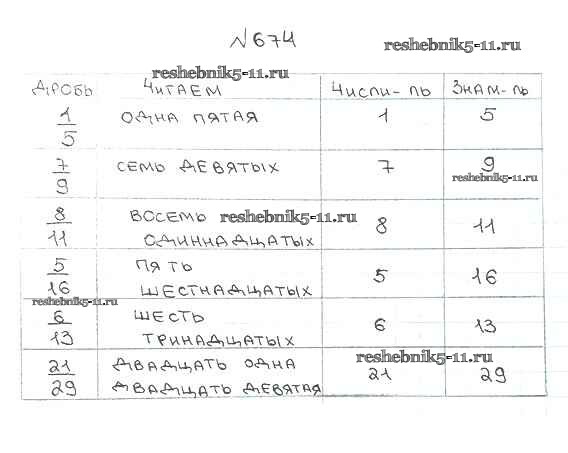 №674
reshebnik5-11.ru
reshebnik5-11.ru
ДРОБЬ ЧИТАЕМ ЧИСЛИ-ЛЬ ЗНАМ-ЛЬ
1/5 ОДНА ПЯТАЯ 1 5
7/9 СЕМЬ ДЕВЯТЫХ 7 9
reshebnik5-11.ru
8/11 ВОСЕМЬ reshebnik5-11.ru 8 11
ОДИННАДЦАТЫХ
5/16 ПЯТЬ 5 16
ШЕСТНАДЦАТЫХ
reshebnik5-11.ru
6/13 ШЕСТЬ 6 13
ТРИНАДЦАТЫХ
reshebnik5-11.ru
21/29 ДВАДЦАТЬ ОДНА 21 29
ДВАДЦАТЬ ДЕВЯТАЯ